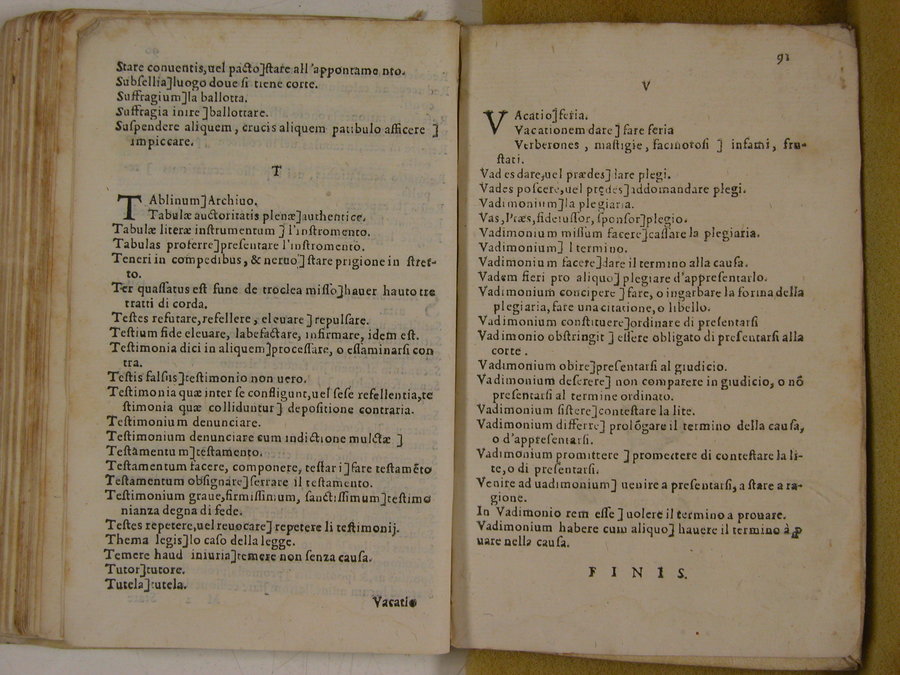 Stare conuentis,uel pacto]ſtare all'appontamento.
Subſellia]luogo doue ſi tiene corte.
Suffragium]la ballotta.
Suffragia inire]ballottare.
Suſpendere aliquem, crucis aliquem patibulo afficere ]
impiccare.
T
TAblinum]Archiuo.
Tabulæ auctoritatis plenæ]authentice.
Tabulæ literæ inſtrumentum ] l'inſtromento.
Tabulas proferre]preſentare l'inſtromento.
Teneri in compedibus, & neruo]ſtare prigione in ſtret-
to.
Ter quaſſatus eſt fune de troclea miſſo]hauer hauto tre
tratti di corda.
Teſtes refutare,refellere, eleuare]repulſare.
Teſtium fide eleuare, labefactare, infirmare, idem eſt.
Teſtimonia dici in aliquem]proceſſare, o eſſaminarſi con
tra.
Teſtis falſus]teſtimonio non uero.
Teſtimonia quæ inter ſe confligunt,uel ſeſe refellentia,te
ſtimonia quæ colliduntur] depoſitione contraria.
Teſtimonium denunciare.
Teſtimonium denunciare cum indictione mulctæ ]
Teſtamentum]teſtamento.
Teſtamentum facere, componere, teſtari]fare teſtamẽto
Teſtamentum obſignare]ſerrare il teſtamento.
Teſtimonium graue,firmiſſimum, ſanctiſſimum]teſtimo
nianza degna di fede.
Teſtes repetere,uel reuocare] repetere li teſtimonij.
Thema legis]lo caſo della legge.
Temere haud iniuria]temere non ſenza cauſa.
Tutor]tutore.
Tutela]tutela.
Vacatio
91
V
VAcatio]feria.
Vacationem dare] fare feria
Verberones, maſtigie, facinoroſi ] infami, fru-
ſtati.
Vades dare,uel prædes] dare plegi.
Vades poſcere,uel prędes]addomandare plegi.
Vadimonium]la plegiaria.
Vas,Præs,fideiuſſor, ſponſor]plegio.
Vadimonium miſſum facere]caſſare la plegiaria.
Vadimonium] l termino.
Vadimonium facere]dare il termino alla cauſa.
Vadem fieri pro aliquo] plegiare d'appreſentarlo.
Vadimonium concipere ] fare, o ingarbare la forma della
plegiaria, fare una citatione, o libello.
Vadimonium conſtituere]ordinare di preſentarſi
Vadimonio obſtringi] eſſere obligato di preſentarſi alla
corte.
Vadimonium obire]preſentarſi al giudicio.
Vadimonium deſerere] non comparere in giudicio, o nõ
preſentarſi al termine ordinato.
Vadimonium ſiſtere]conteſtare la lite.
Vadimonium differre] prolõgare il termino della cauſa,
o d'appreſentarſi.
Vadimonium promittere ] promettere di conteſtare la li-
te,o di preſentarſi.
Venire ad uadimonium] uenire a preſentarſi, a ſtare a ra-
gione.
In Vadimonio rem eſſe ] uolere il termino a prouare.
Vadimonium habere cum aliquo] hauere il termino à ꝓ
uare nella cauſa.
F I N I S.